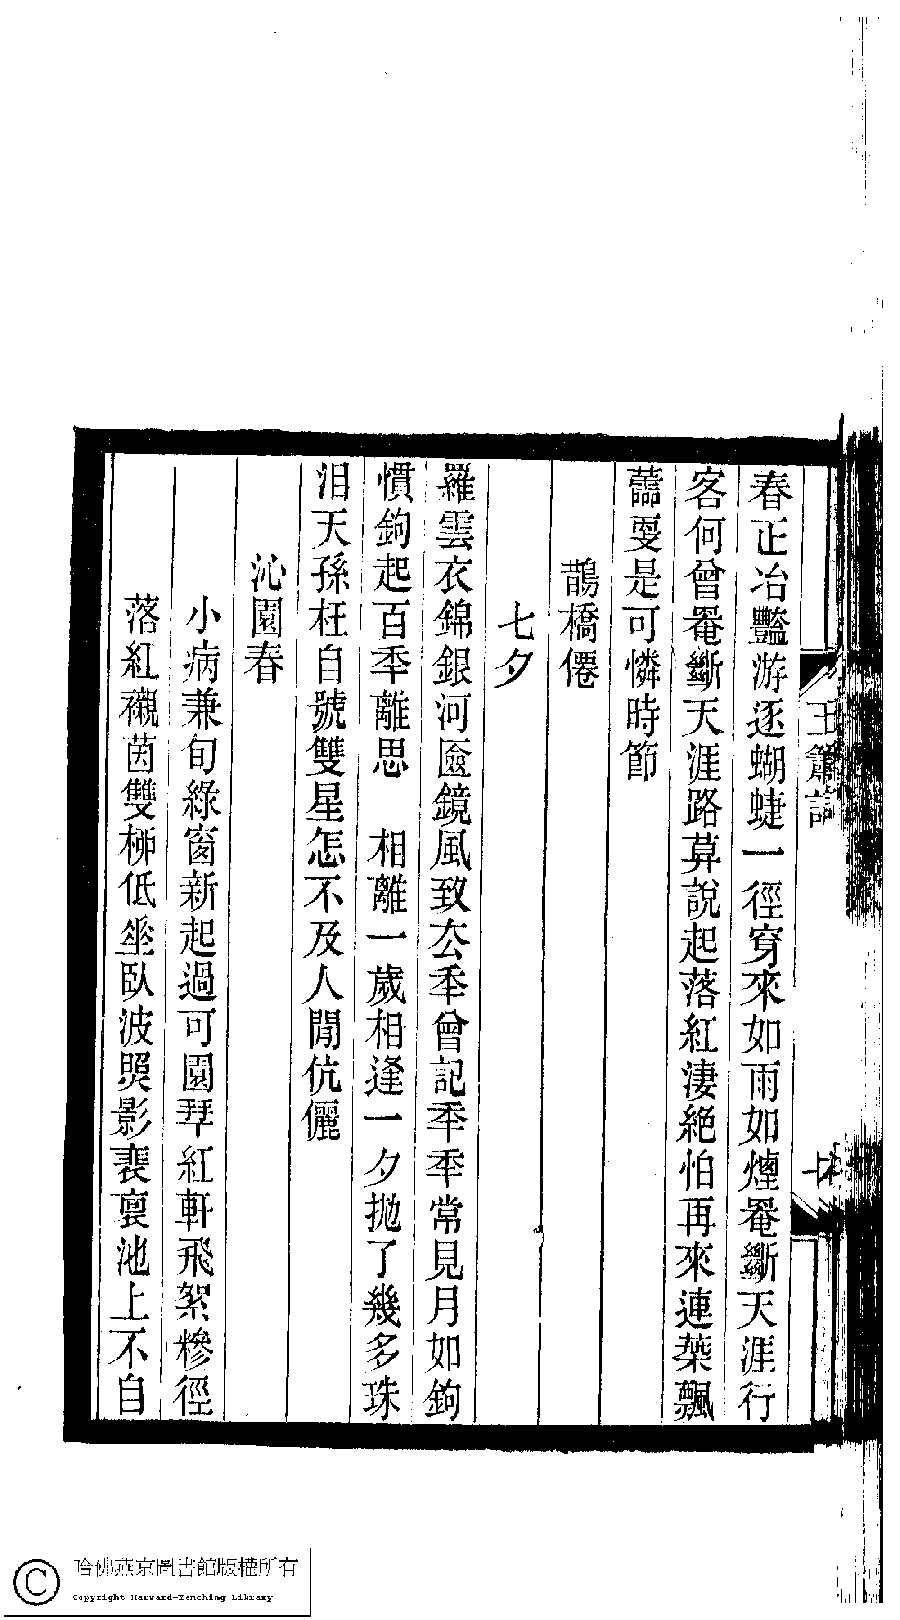 春正冶豔游逐蝴蜨一徑穿來如雨如煙罨斷天涯行
客何曾罨斷天涯路算說起落紅淒絕怕再來連葉飄
蘦㪅是可憐時節
鵲橋僊
七夕
羅雲衣錦銀河匳鏡風致厺秊曾記秊秊常見月如鉤
慣鉤起百秊離思　相離一歲相逢一夕拋了幾多珠
泪天孫枉自號雙星怎不及人閒伉儷
沁園春
小病兼旬綠窗新起過可園琴紅軒飛絮糝徑
落紅襯茵雙桺低坐臥波照影裵裒池上不自
玉簫詞
哈佛燕京圖書館版權所有
Copyright Harvard-Yenching Library